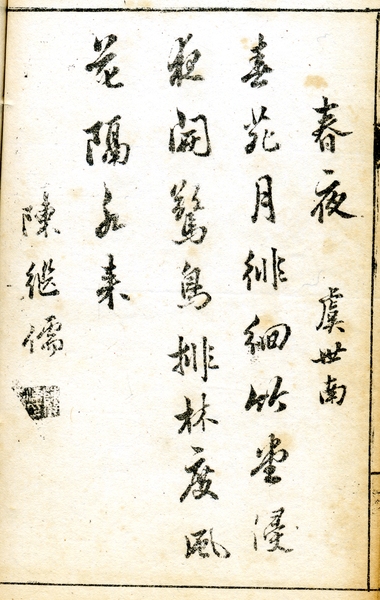 春夜 虞世南
春苑月徘徊竹堂侵
夜開驚鳥排林度風
花隔水来
陳繼儒